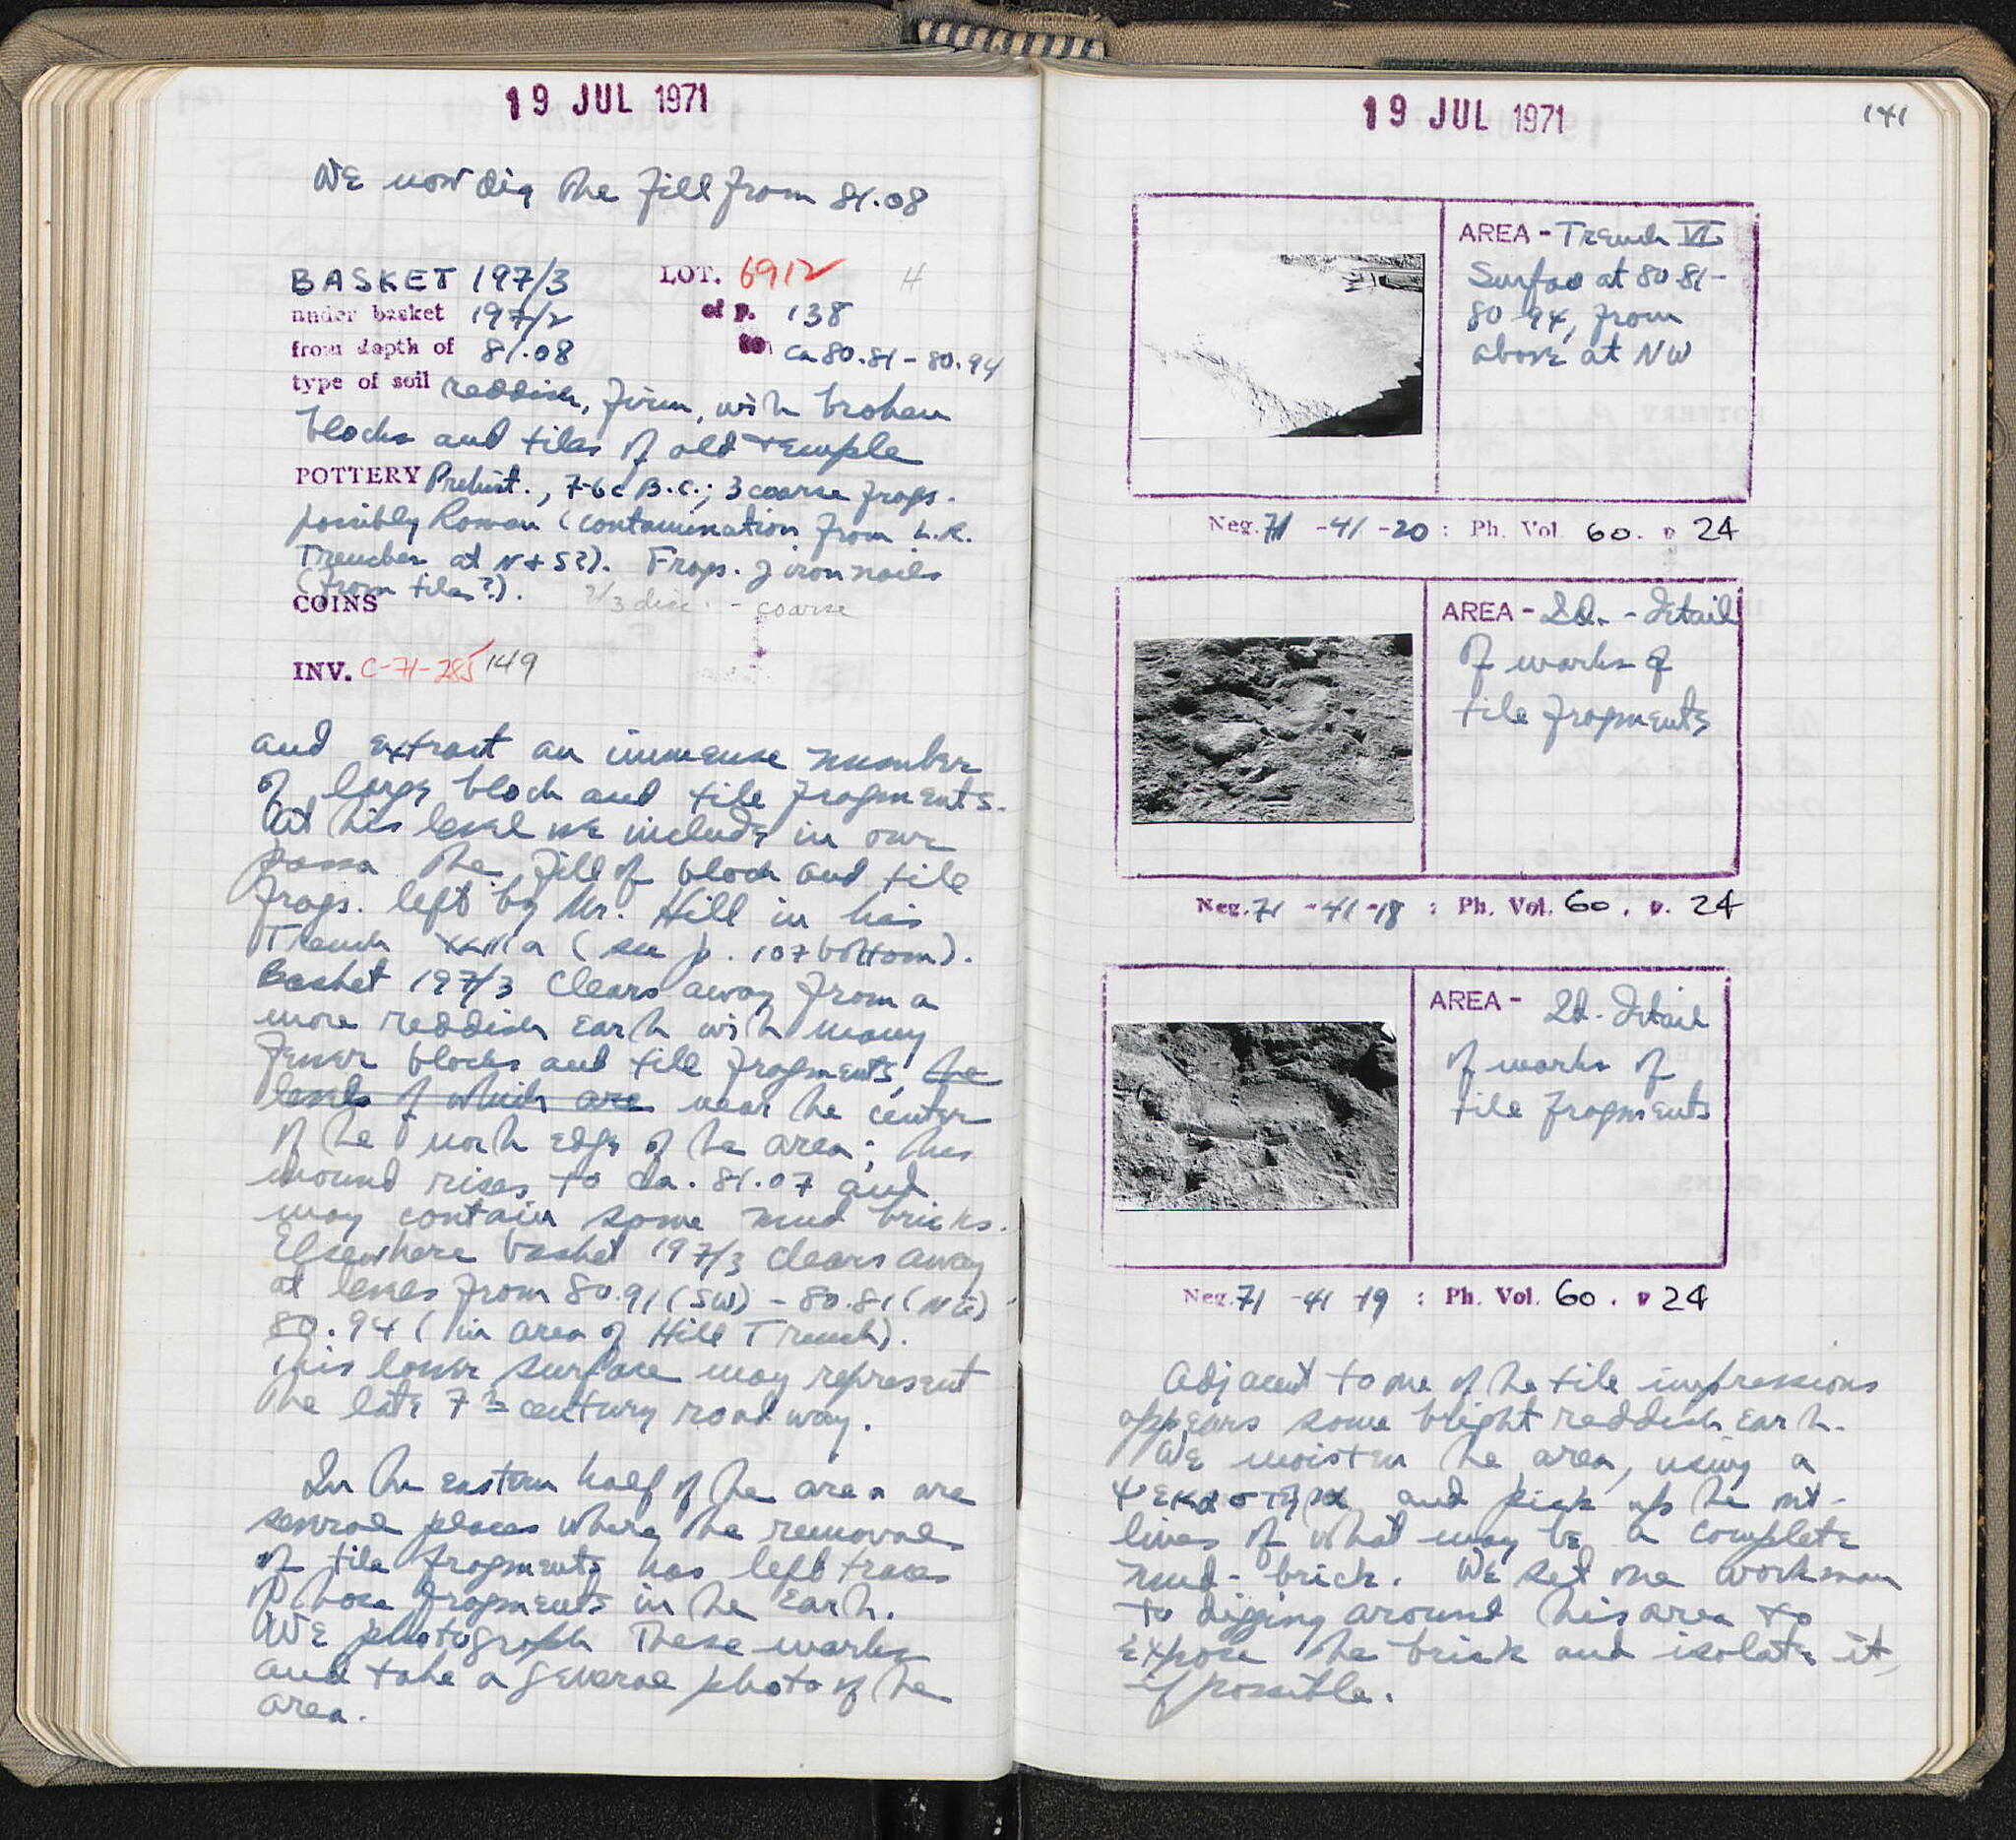 19 JUL 1971
WE now dig the fill from 81.08
BASKET 197/3 LOT. 6912 4
under basket 197/2 of p. 138
from depth of 81.08 to ca 80.81 - 80.94
type of soil reddish, firm, with broken
blocks and tiles of old temple
POTTERY Prehist., 7-6c B.C.; 3 coarse frags.
possibly Roman (contamination from L.R.
Trenches at N + S?). Frags. of iron nails
(from tiles?).
COINS 2/3 disc. - coarse
INV. C-71-285 149
and extract an immense number
of large block and tile fragments.
At this level we include in our
passa the fill of block and tile
frags. left by Mr. Hill in his
Trench a (see p. 107 bottom).
Basket 197/3 clears away from a
more reddish earth with many
fewer blocks and tile fragments, the
levels of which are near the center
of the north edge of the area; this
mound rises to ca. 81.07 and
may contain some mud bricks.
Elsewhere basket 197/3 clears away
at levels from 80.91 (SW) - 80.81 (NE)
80.94 (in area of Hill Trench).
This lower surface may represent
the late 7th century roadway.
In the eastern half of the area are
several places where the removal
of tile fragments has left traces
of those fragments in the earth.
WE photograph these marks
and take a general photo of the
area.
19 JUL 1971
141
AREA - Trench VI
Surface at 80.81-
80.94, from
above at NW
Neg. 71 -41 -20 : Ph. Vol 60. p 24
AREA - Id. - detail
of marks of
tile fragments
Neg. 71 -41 -18 : Ph. Vol. 60. p. 24
AREA - Id. detail
of marks of
tile fragments
Neg. 71 -41 -19 : Ph. Vol. 60. p 24
Adjacent to one of the tile impressions
appears some bright reddish earth.
WE moisten the area, using a
and pick up the out-
lines of what may be a complete
mud-brick. WE set one workman
to digging around this area to
expose the brick and isolate it,
if possible.